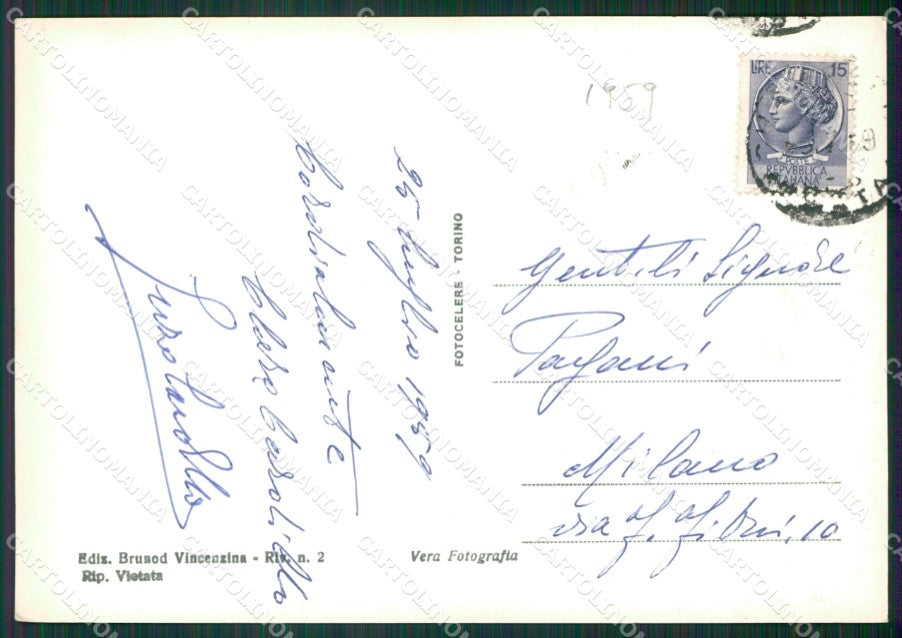 1959
LIRE 15
POSTE
REPVBBLICA
ITALIANA
25 luglio 1959
Cordialmente
FOTOCELERE - TORINO
Gentili Signore
Pagani
Milano
via
10
Ediz. Brunod Vincenzina - Riv. n. 2
Rip. Vietata
Vera Fotografia
CARTOLINOMANIA